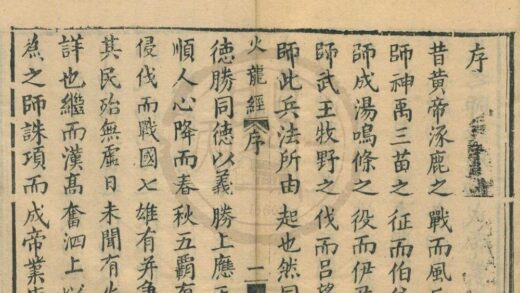 序
昔黃帝涿鹿之戰而風
師神禹三苗之征而伯
師成湯鳴條之役而伊
師武王牧野之伐而呂望
師此兵法所由起也然同
火龍經 序 一
德勝同德以義勝上應
順人心降而春秋五霸有
侵伐而戰國七雄有并
其民殆無虛日未聞有
詳也繼而漢高奮泗上以
為之師誅項而成帝業